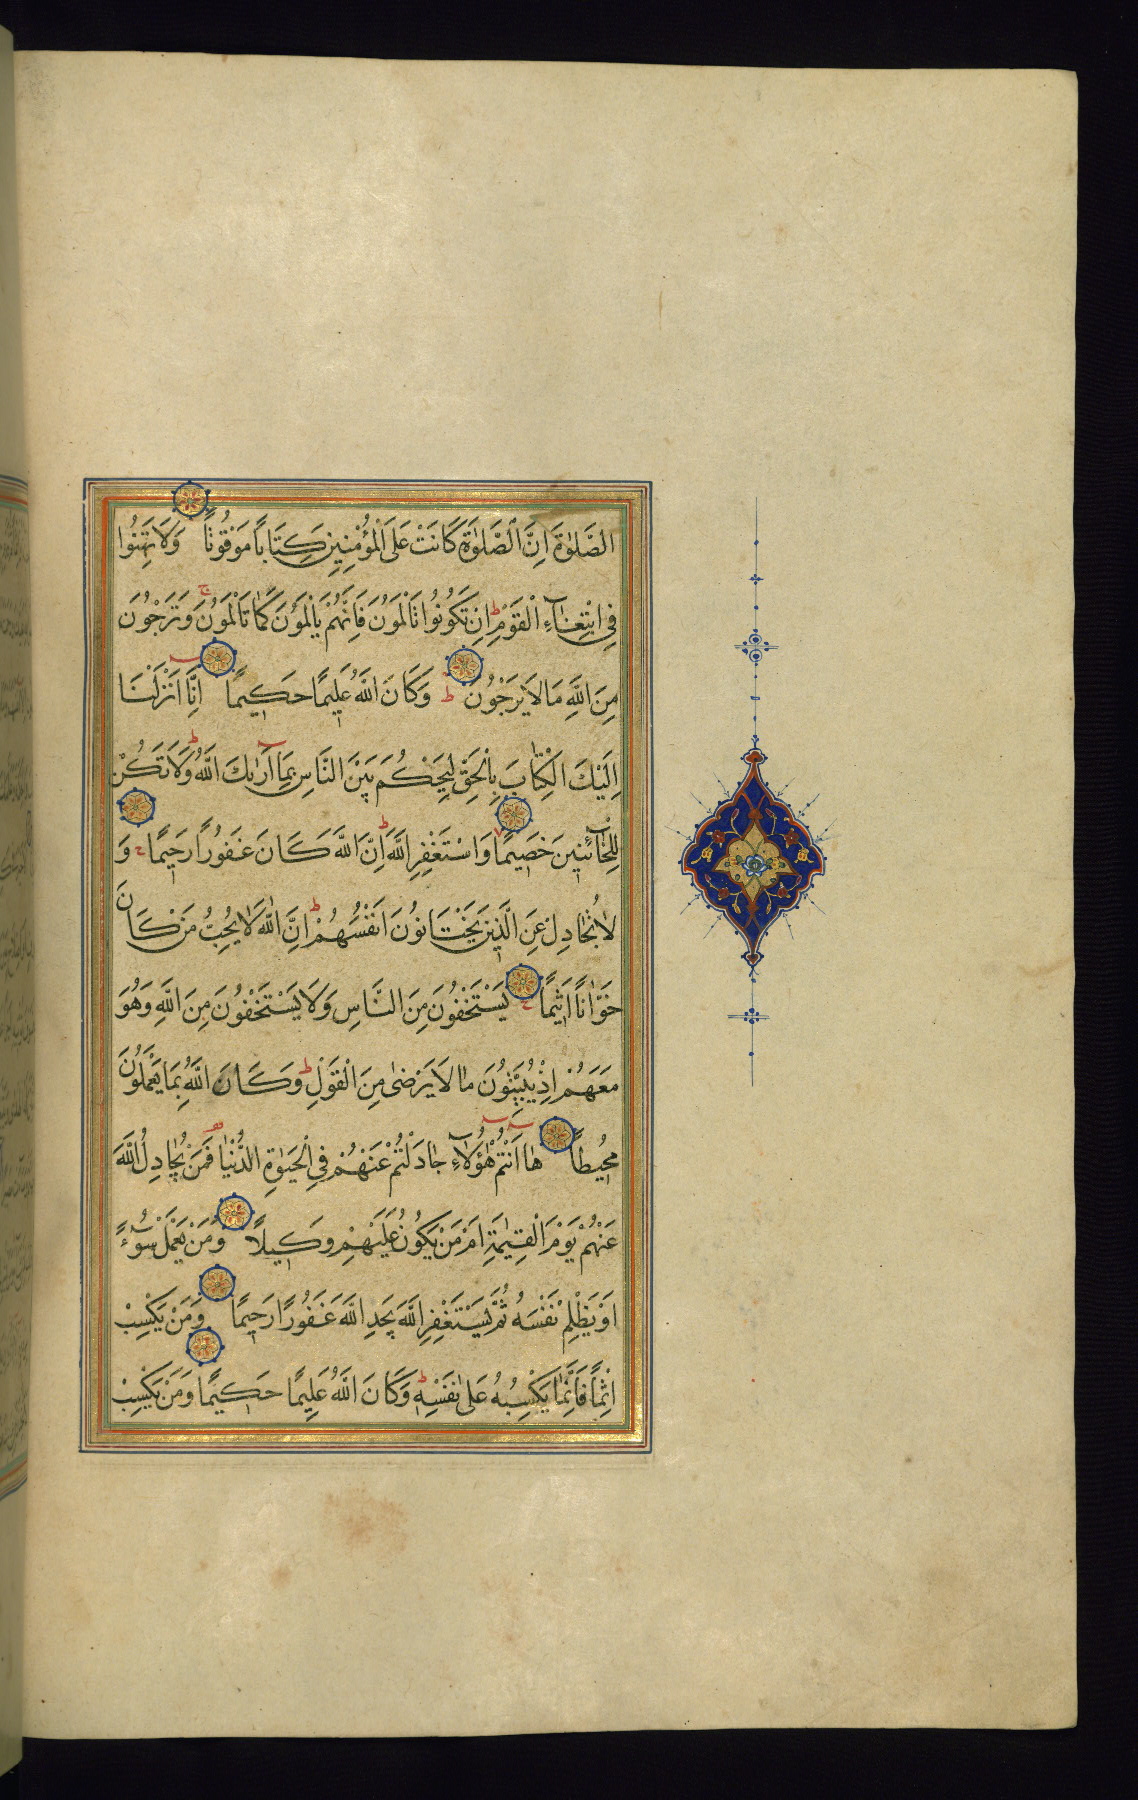 الصَّلٰوةَ اِنَّ الصَّلٰوةَ كَانَتْ عَلَى الْمُؤْمِنِينَ كِتَابًا مَوْقُوتًا وَلَا تَهِنُوا
فِي ابْتِغَاءِ الْقَوْمِ ط اِنْ تَكُونُوا تَاْلَمُونَ فَاِنَّهُمْ يَاْلَمُونَ كَمَا تَاْلَمُونَ ج وَتَرْجُونَ
مِنَ اللّٰهِ مَا لَا يَرْجُونَ ط وَكَانَ اللّٰهُ عَلِيمًا حَكِيمًا اِنَّا اَنْزَلْنَا
اِلَيْكَ الْكِتَابَ بِالْحَقِّ لِتَحْكُمَ بَيْنَ النَّاسِ بِمَا اَرٰىكَ اللّٰهُ ط وَلَا تَكُنْ
لِلْخَائِنِينَ خَصِيمًا لا وَاسْتَغْفِرِ اللّٰهَ ط اِنَّ اللّٰهَ كَانَ غَفُورًا رَحِيمًا ج وَ
لَا تُجَادِلْ عَنِ الَّذِينَ يَخْتَانُونَ اَنْفُسَهُمْ ط اِنَّ اللّٰهَ لَا يُحِبُّ مَنْ كَانَ
خَوَّانًا اَثِيمًا ج يَسْتَخْفُونَ مِنَ النَّاسِ وَلَا يَسْتَخْفُونَ مِنَ اللّٰهِ وَهُوَ
مَعَهُمْ اِذْ يُبَيِّتُونَ مَا لَا يَرْضٰى مِنَ الْقَوْلِ ط وَكَانَ اللّٰهُ بِمَا يَعْمَلُونَ
مُحِيطًا هَا اَنْتُمْ هٰؤُلَاءِ جَادَلْتُمْ عَنْهُمْ فِي الْحَيٰوةِ الدُّنْيَا فَمَنْ يُجَادِلُ اللّٰهَ
عَنْهُمْ يَوْمَ الْقِيٰمَةِ اَمْ مَنْ يَكُونُ عَلَيْهِمْ وَكِيلًا وَمَنْ يَعْمَلْ سُوءًا
اَوْ يَظْلِمْ نَفْسَهُ ثُمَّ يَسْتَغْفِرِ اللّٰهَ يَجِدِ اللّٰهَ غَفُورًا رَحِيمًا وَمَنْ يَكْسِبْ
اِثْمًا فَاِنَّمَا يَكْسِبُهُ عَلٰى نَفْسِهِ ط وَكَانَ اللّٰهُ عَلِيمًا حَكِيمًا وَمَنْ يَكْسِبْ